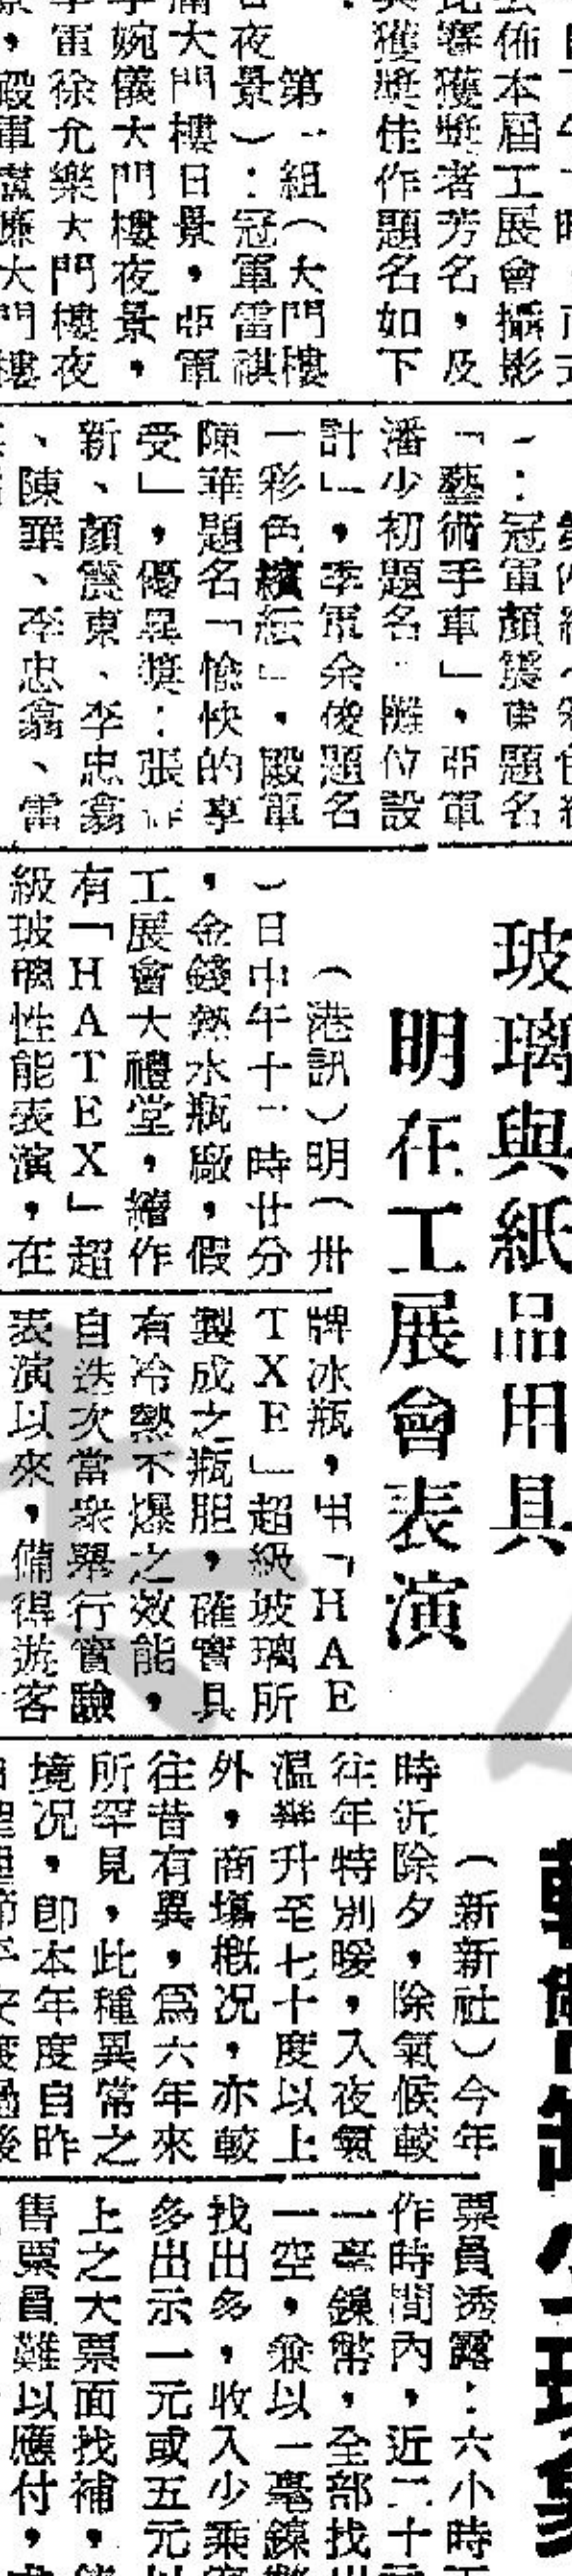 佈本屆工展會攝影
賽獲獎者芳名，及
獲獎佳作題名如下
第一組（大門樓
夜景）：冠軍雷祺
大門樓日景，亞軍
婉儀大門樓夜景，
軍徐允樂大門樓夜
殿軍
大門樓
：冠軍顏震東題名
「藝術手車」，亞軍
潘少初題名「攤位設
計」，季軍余俊題名
「彩色繽紛」，殿軍
陳華題名「愉快的享
受」，優異獎：張
新、顏震東、李忠翕
、陳華、李忠翕、雷
玻璃與紙品用具
明在工展會表演
（港訊）明（卅
）日中午十二時廿分
，金錢熱水瓶廠，假
工展會大禮堂，續作
有「HATEX」超
級玻璃性能表演，在
牌冰瓶，由「HAE
TXE」超級玻璃所
製成之瓶胆，確實具
有冷熱不爆之效能，
自迭次當衆舉行實驗
表演以來，備得遊客
（新新社）今年
時近除夕，除氣候較
往年特別暖，入夜氣
溫攀升至七十度以上
外，商塲概况，亦較
往昔有異，爲六年來
所罕見，此種異常之
境况，卽本年度自昨
票員透露：六小時
作時間內，近二十
一毫鎳幣，全部找出
一空，兼以一毫鎳幣
找出多，收入少，乘
多出示一元或五元以
上之大票面找補，
售票員難以應付，